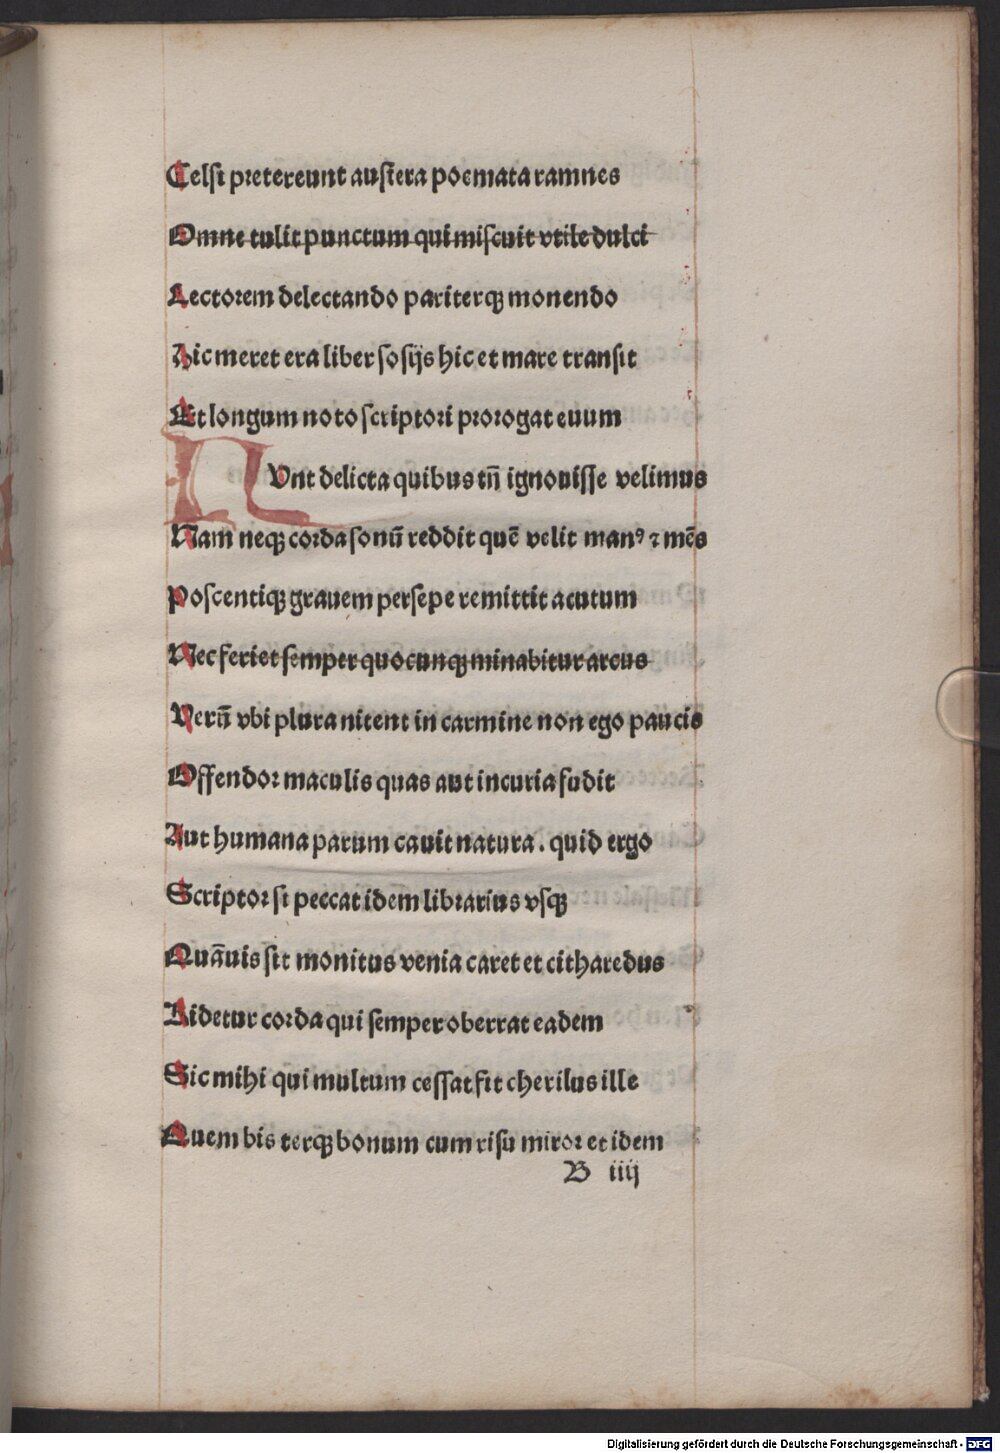 Celsi pretereunt austera poemata ramnes
Omne tulit punctum qui miscuit vtile dulci
Lectorem delectando pariterqꝫ monendo
Hic meret era liber sosijs hic et mare transit
Et longum noto scriptori prorogat euum
NVnt delicta quibus tn̄ ignouisse velimus
Nam neqꝫ corda sonū reddit quē velit manꝰ ⁊ mēs
Poscentiqꝫ grauem persepe remittit acutum
Nec feriet semper quocunqꝫ minabitur arcus
Verū vbi plura nitent in carmine non ego paucis
Offendor maculis quas aut incuria fudit
Aut humana parum cauit natura . quid ergo
Scriptor si peccat idem librarius vsqꝫ
Quāuis sit monitus venia caret et citharedus
Ridetur corda qui semper oberrat eadem
Sic mihi qui multum cessat fit cherilus ille
Quem bis terqꝫ bonum cum risu miror et idem
B iiij
Digitalisierung gefördert durch die Deutsche Forschungsgemeinschaft - DFG